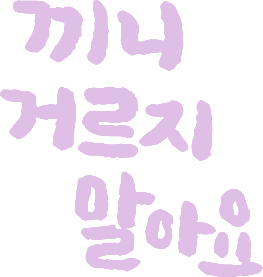 끼니
거르지
말아요